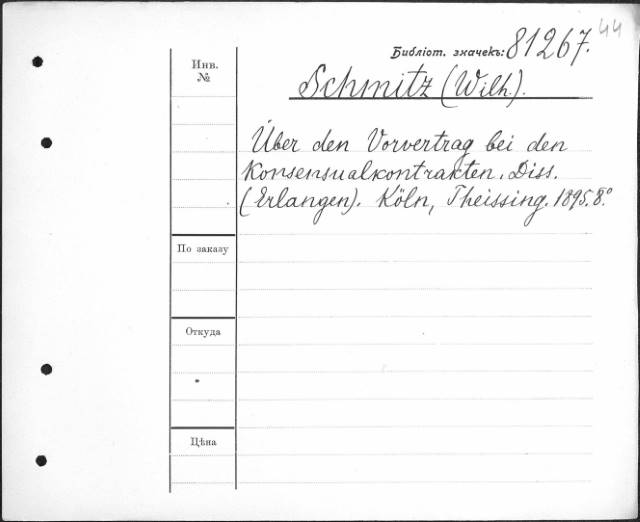 44
Библіот. значекъ: 81267.
Инв.
№
Schmitz (Wilh.).
Über den Vorvertrag bei den
Konsensualkontrakten. Diss.
(Erlangen). Köln, Theissing. 1895. 8.°
По заказу
Откуда
Цѣна